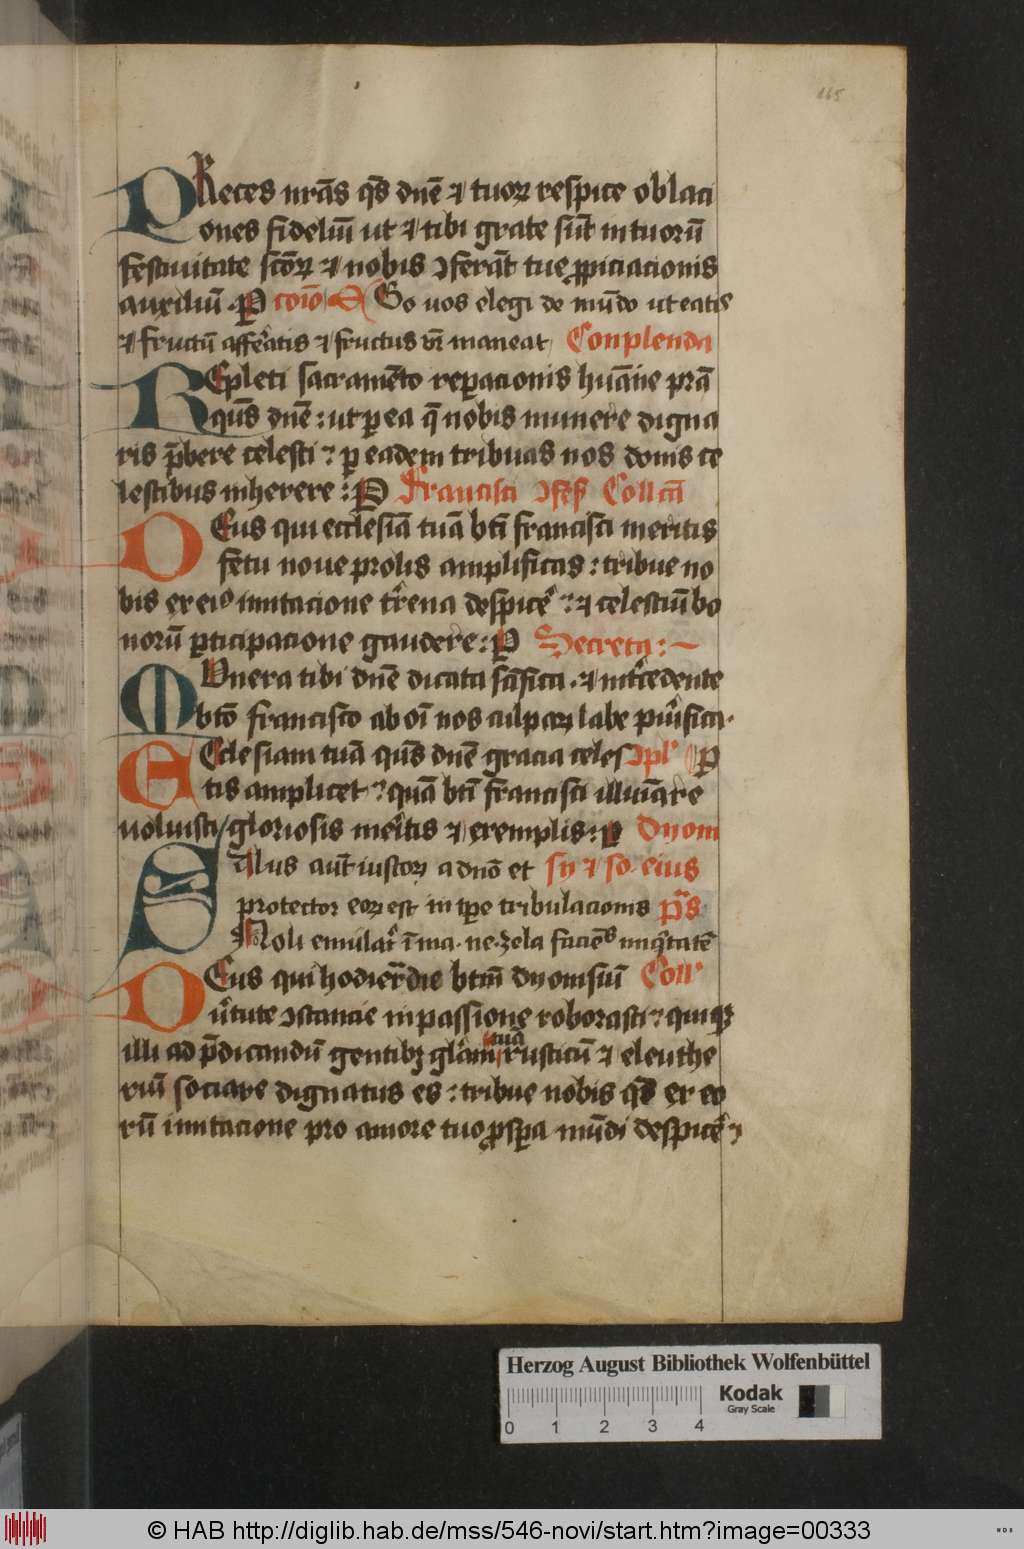 165
PReces nr̄as qs̄ dn̄e ⁊ tuoꝝ respice oblaci
ones fideliū ut ⁊ tibi grate sūt in tuorū
festiuitate scōꝝ ⁊ nobis ꝯferāt tue ꝓpiciacionis
auxiliū P coīo Ego uos elegi de mūdo ut eatis
⁊ fructū afferatis ⁊ fructus vr̄ maneat Conplenda
REpleti sacramēto reꝑacionis huāne prā
qūs dn̄e : ut ꝑ ea q̄ nobis munere digna
ris p̄bere celesti ? ꝑ eadem tribuas nos donis ce
lestibus inherere : P Francisci ꝯfeſ Collcā
DEus qui ecclesiā tuā bt̄i francisci meritis
fetu noue prolis amplificas : tribue no
bis ex eiꝰ imitacione tr̄rena despicẽ ? ⁊ celestiū bo
norū ꝑticipacione gaudere : P Secreta :~
MUnera tibi dn̄e dicata sc̄ifica . ⁊ int̄cedente
bt̄o francisco ab oī nos culpaꝝ labe purifica .
ECclesiam tuā qūs dn̄e gracia celes ꝯpl P
tis amplicet ? quā bt̄i francisci illuīare
uoluisti gloriosis meritis ⁊ exemplis : P Dyoni
Salus aūt iustoꝝ a dn̄o et sy ⁊ so. eius
protector eoꝝ est in tp̄e tribulacionis p̄s
Noli emulari ī ma. ne. zela facies iniq̄tatē
DEus qui hodierna die btm̄ dyonisiū Coll
v̄tute ꝯstancie in passione roborasti ? quiqꝫ
illi ad p̄dicandū gentibꝫ gl̄am tuā rusticū ⁊ eleuthe
riū sociare dignatus es : tribue nobis qs̄ ex eo
rū imitacione pro amore tuo ꝓspa mūdi despicẽ ⁊
Herzog August Bibliothek Wolfenbüttel
0 1 2 3 4
Kodak
Gray Scale
© HAB http://diglib.hab.de/mss/546-novi/start.htm?image=00333